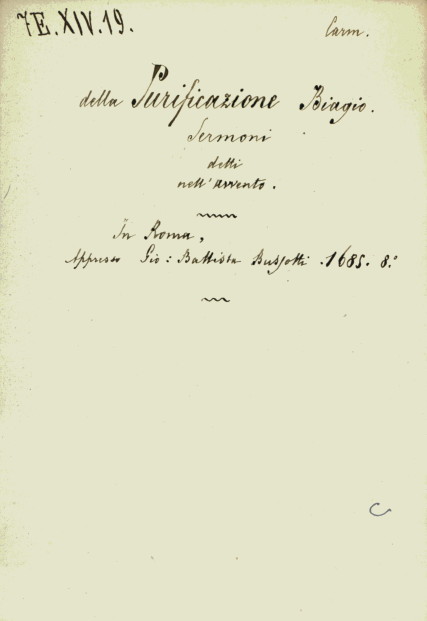 7E.XIV.19.
Carm.
della Purificazione Biagio.
Sermoni
detti
nell'avvento.
In Roma,
Appresso Gio: Battista Bussotti. 1685. 8.º
C